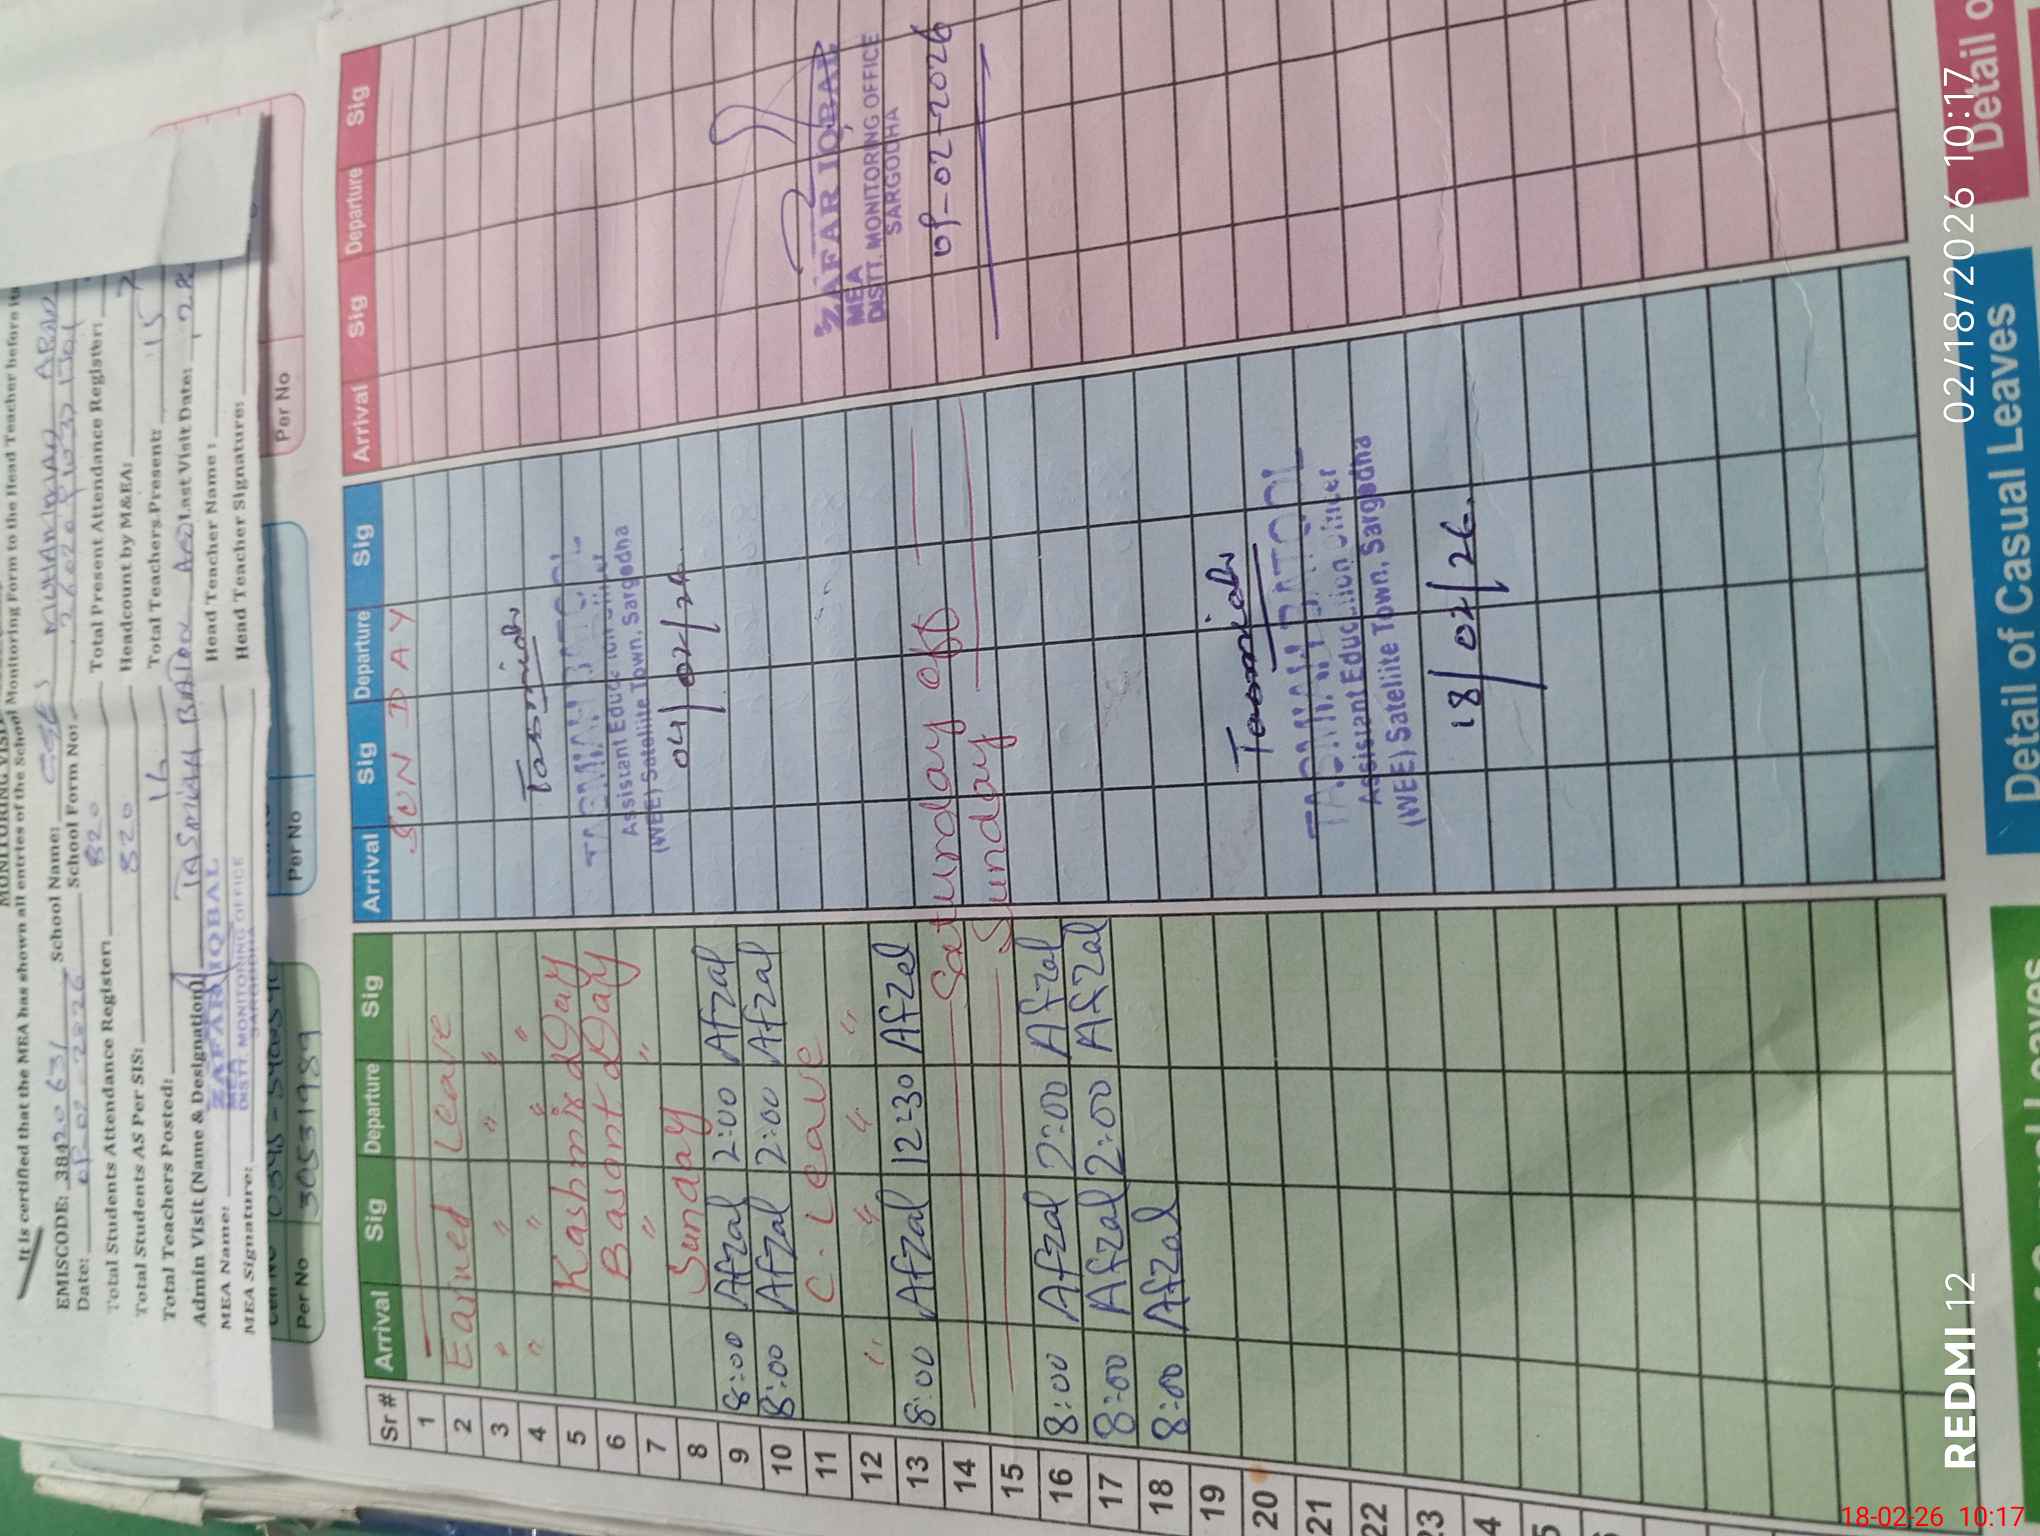 It is certified that the MEA has shown all entries of the School Monitoring Form to the Head Teacher before
EMISCODE: 38420631 School Name:
Date: 09-02-2026 School Form No:
Total Students Attendance Register: 820 Total Present Attendance Register:
Total Students AS Per SIS: 820 Headcount by M&EA:
Total Teachers Posted: 16 Total Teachers Present: 15
Admin Visit (Name & Designation) Last Visit Date:
MEA Name: Head Teacher Name :
MEA Signature: Head Teacher Signature:
ZAFAR IQBAL
MEA
DISTT. MONITORING OFFICE
SARGODHA
Per No 30531989 Per No Per No
Sr # Arrival Sig Departure Sig Arrival Sig Departure Sig Arrival Sig Departure Sig
1 SUNDAY
2 Earned Leave
3 " " " "
4 " " " "
5 Kashmir Day
6 Basant Day
7 " "
8 Sunday
9 8:00 Afzal 2:00 Afzal
10 8:00 Afzal 2:00 Afzal
11 C. Leave
12 " " " "
13 8:00 Afzal 12:30 Afzal
14 Saturday off
15 Sunday
16 8:00 Afzal 2:00 Afzal
17 8:00 Afzal 2:00 Afzal
18 8:00 Afzal
19
20
21
22
23
Assistant Education Officer
(WEE) Satellite Town, Sargodha
04/02/26
ZAFAR IQBAL
MEA
DISTT. MONITORING OFFICE
SARGODHA
09-02-2026
Assistant Education Officer
(WEE) Satellite Town, Sargodha
18/02/26
Detail of Casual Leaves
Detail o
REDMI 12
02/18/2026 10:17
18-02-26 10:17